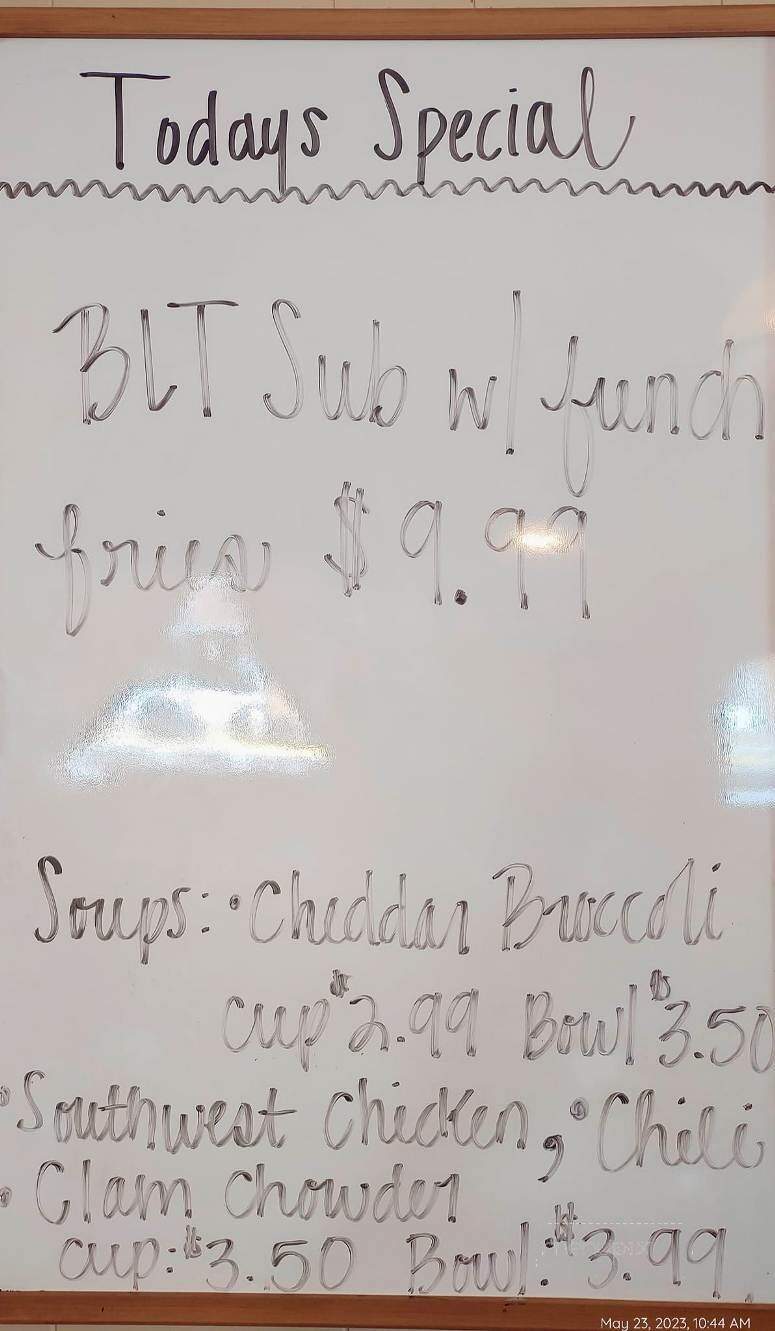 Todays Special
BLT Sub w/ french
fries $9.99
Soups: • Cheddar Broccoli
cup $2.99 Bowl $3.50
• Southwest Chicken, • Chili
• Clam Chowder
cup: $3.50 Bowl: $3.99
May 23, 2023, 10:44 AM